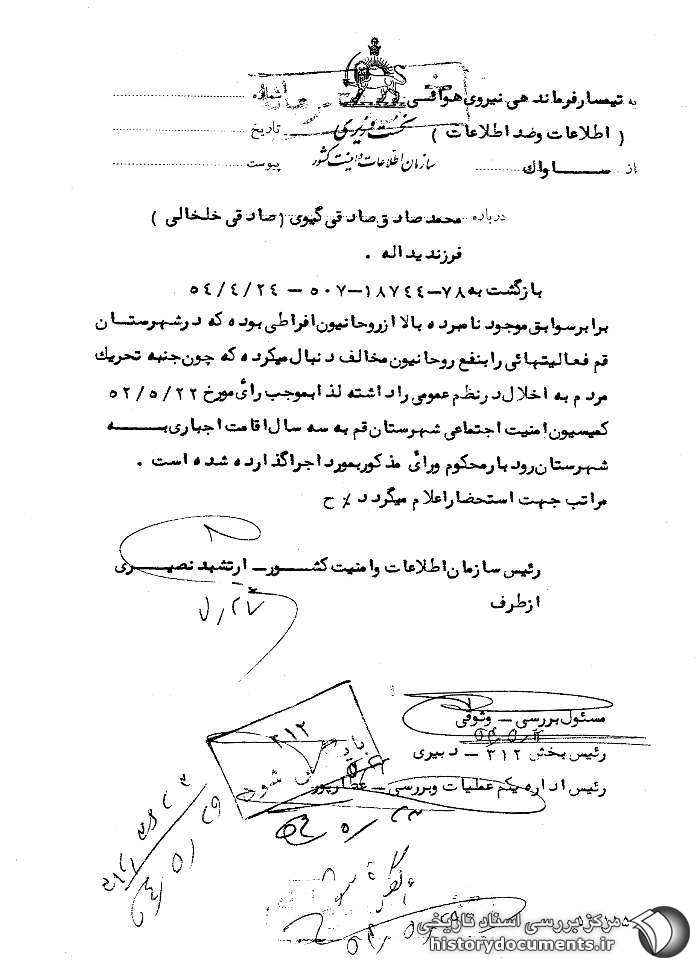 به تیمسار فرماندهی نیروی هوائی شماره
( اطلاعات وضد اطلاعات ) نخست وزیری تاریخ
از ســـاواک سازمان اطلاعات و امنیت کشور پیوست
درباره محمد صادق صادقی گیوی ( صادقی خلخالی )
فرزند یداله .
بازگشت به ۷۸-۱۸۷۴۴-۵۰۷ - ۵۴/۴/۲۴
برابر سوابق موجود نامبرده بالا از روحانیون افراطی بوده که در شهرستـان
قم فعالیتهائی را بنفع روحانیون مخالف دنبال میکرده که چون جنبه تحریک
مردم به اخلال در نظم عمومی را داشته لذا بموجب رأی مورخ ۵۲/۵/۲۲
کمیسیون امنیت اجتماعی شهرستان قم به سه سال اقامت اجباری بـــه
شهرستان رودبار محکوم ورأی مذکور بمورد اجرا گذارده شده است .
مراتب جهت استحضار اعلام میگردد ٪ ح
رئیس سازمان اطلاعات وامنیت کشـــور ـ ارتشبد نصیـــری
از طرف
مسئول بررسی ـ وثوقی
رئیس بخش ۳۱۲ ـ دبیری
رئیس اداره یکم عملیات وبررسی ـ عطارپور
۳۱۲
بایگانی شود
مرکز بررسی اسناد تاریخی
historydocuments.ir